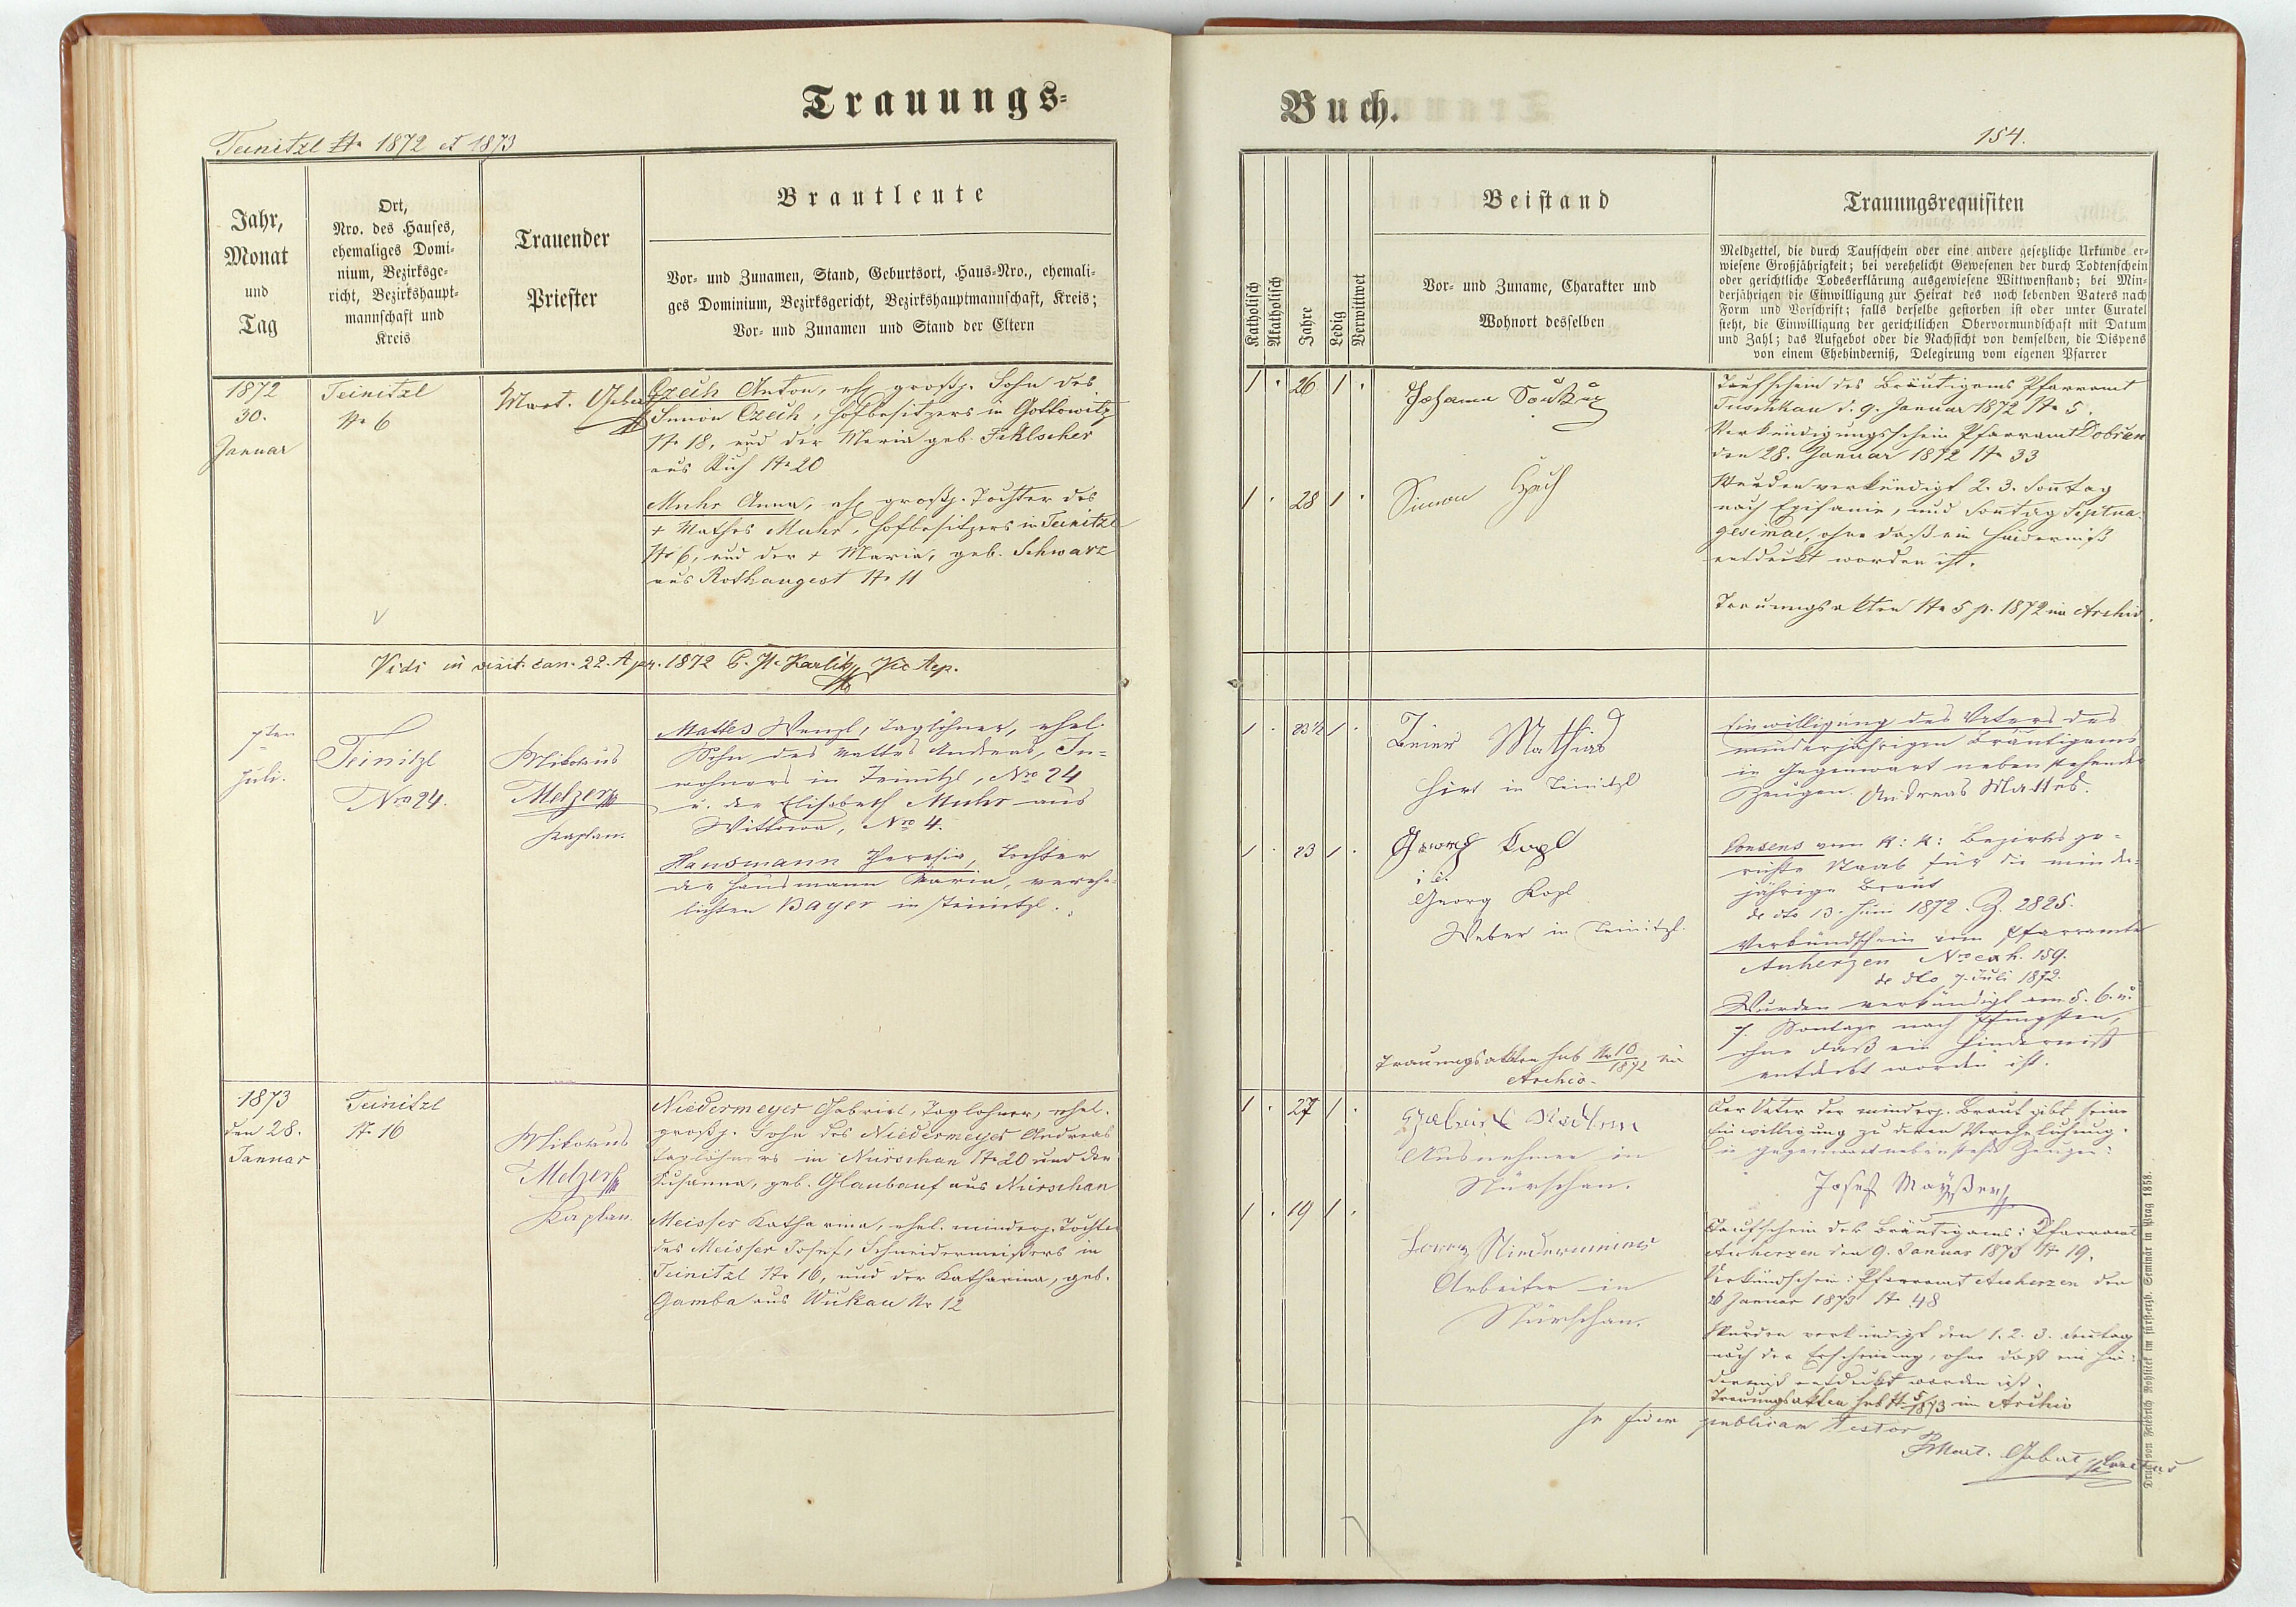 Trauungs-
Teinitzl No 1872 et 1873
Jahr,
Monat
und
Tag
Ort,
Nro. des Hauses,
ehemaliges Domi-
nium, Bezirksge-
richt, Bezirkshaupt-
mannschaft und
Kreis
Trauender
Priester
Brautleute
Vor- und Zunamen, Stand, Geburtsort, Haus-Nro., ehemali-
ges Dominium, Bezirksgericht, Bezirkshauptmannschaft, Kreis;
Vor- und Zunamen und Stand der Eltern
1872
30.
Januar
Teinitzl
No 6
Mart.
Czech Anton, ehl. großj. Sohn des
Simon Czech, Hofbesitzers in Gottowitz
No 18, und der Maria geb.
aus No 20
Muhr Anna, ehl. großj. Tochter des
+ Mathes Muhr, Hofbesitzers in Teinitzl
No 6, und der + Maria, geb. Schwarz
aus Rothaugest No 11
Vidi in visit. can. 22. Apr. 1872 Karlik Vic Aep.
7ten
Juli.
Teinitzl
Nro 24.
Nikolaus
Melzer
Kaplan.
Mattes Wenzl, Taglöhner, ehel.
Sohn des Mattes Andreas, In-
wohners in Teinitzl, Nro 24
u. der Elisabeth Muhr aus
Wittowa, Nro 4.
Hausmann Theresia, Tochter
der Hausmann Maria, vereh-
lichten Bayer in Teinitzl.
1873
den 28.
Januar
Teinitzl
No 16
Nikolaus
Melzer
Kaplan.
Niedermeyer Gabriel, Taglöhner, ehel.
großj. Sohn des Niedermeyer Andreas
Taglöhners in Nürschan No 20 und der
Susanna, geb. Glaubauf aus Nürschan
Meisser Katharina, ehel. minderj. Tochter
des Meisser Josef, Schneidermeisters in
Teinitzl No 16, und der Katharina, geb.
Gamba aus Wilkau Nr 12
Buch.
154.
Katholisch
Akatholisch
Jahre
Ledig
Verwittwet
Beistand
Vor- und Zuname, Charakter und
Wohnort desselben
Trauungsrequisiten
Meldzettel, die durch Taufschein oder eine andere gesetzliche Urkunde er-
wiesene Großjährigkeit; bei verehelicht Gewesenen der durch Todtenschein
oder gerichtliche Todeserklärung ausgewiesene Wittwenstand; bei Min-
derjährigen die Einwilligung zur Heirat des noch lebenden Vaters nach
Form und Vorschrift; falls derselbe gestorben ist oder unter Curatel
steht, die Einwilligung der gerichtlichen Obervormundschaft mit Datum
und Zahl; das Aufgebot oder die Nachsicht von demselben, die Dispens
von einem Ehehinderniß, Delegirung vom eigenen Pfarrer
1 26 1
Johann
1 28 1
Simon Czech
Taufschein des Bräutigams Pfarramt
Tuschkau d. 9. Januar 1872 No 5.
Verkündigungsschein Pfarramt Dobrzan
den 28. Januar 1872 No 33
Wurden verkündigt 2. 3. Sonntag
nach Epifanie, und Sontag Septua-
gesimae, ohne daß ein Hinderniß
entdeckt worden ist.
Trauungsakten No 5 p. 1872 im Archiv.
1 23 1/2 1
Mathias
Hirt in Teinitzl
1 23 1
Georg Kopl
i. e.
Georg Kopl
Weber in Teinitzl.
Trauungsakten sub No 10/1872 im
Archiv.
Einwilligung des Vaters des
minderjährigen Bräutigams
in Gegenwart nebenstehender
Zeugen. Andreas Mattes.
Consens vom K: K: Bezirksge-
richte Staab für die minder-
jährige Braut
de dto 13. Juni 1872. Z. 2825.
Verkündschein vom Pfarramte
Auherzen Nro exh. 159.
de dto 7. Juli 1872.
Wurden verkündigt am 5. 6. u.
7. Sontage nach Pfingsten,
ohne daß ein Hinderniß
entdeckt worden ist.
1 27 1
Gabriel
Ausnehmer in
Nürschan.
1 19 1
Niedermeier
Arbeiter in
Nürschan.
Der Vater der minderj. Braut gibt seine
Einwilligung zu deren Verehelichung.
in Gegenwart nebensteh. Zeugen:
Josef
Taufschein des Bräutigams: Pfarramt
Auherzen den 9. Januar 1873 No 19.
Verkündschein: Pfarramt Auherzen den
26 Januar 1873 No 48
Wurden verkündigt den 1. 2. 3. Sontag
nach der Erscheinung, ohne daß ein Hin-
derniß entdeckt worden ist.
Trauungsakten sub No 5/1873 im Archiv
In fidem publicam testor
Mart.
Druck von Friedrich Rohliček im fürsterzb. Seminär in Prag 1858.